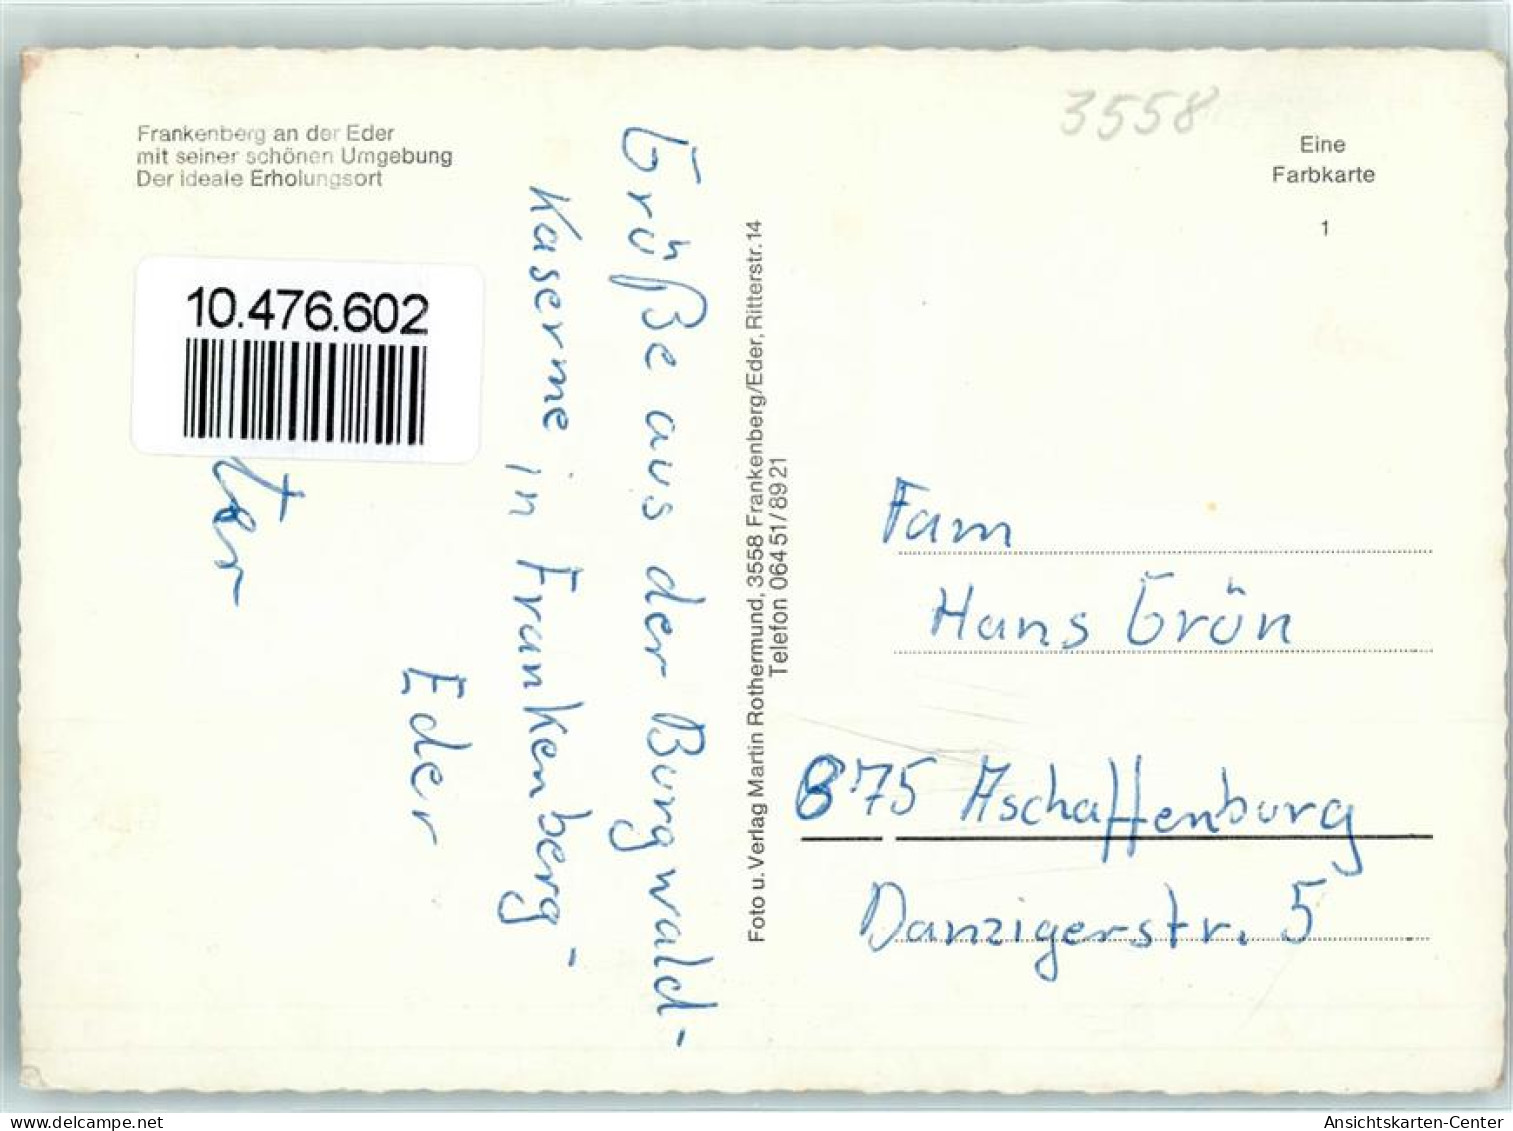 Frankenberg an der Eder
mit seiner schönen Umgebung
Der ideale Erholungsort
10.476.602
Grüße aus der Burgwald-
Kaserne in Frankenberg-
Eder
Foto u. Verlag Martin Rothermund, 3558 Frankenberg/Eder, Ritterstr. 14
Telefon 06451/8921
3558
Eine
Farbkarte
1
Fam
Hans Grün
875 Aschaffenburg
Danzigerstr. 5
oldthing.com
Ansichtskarten-Center